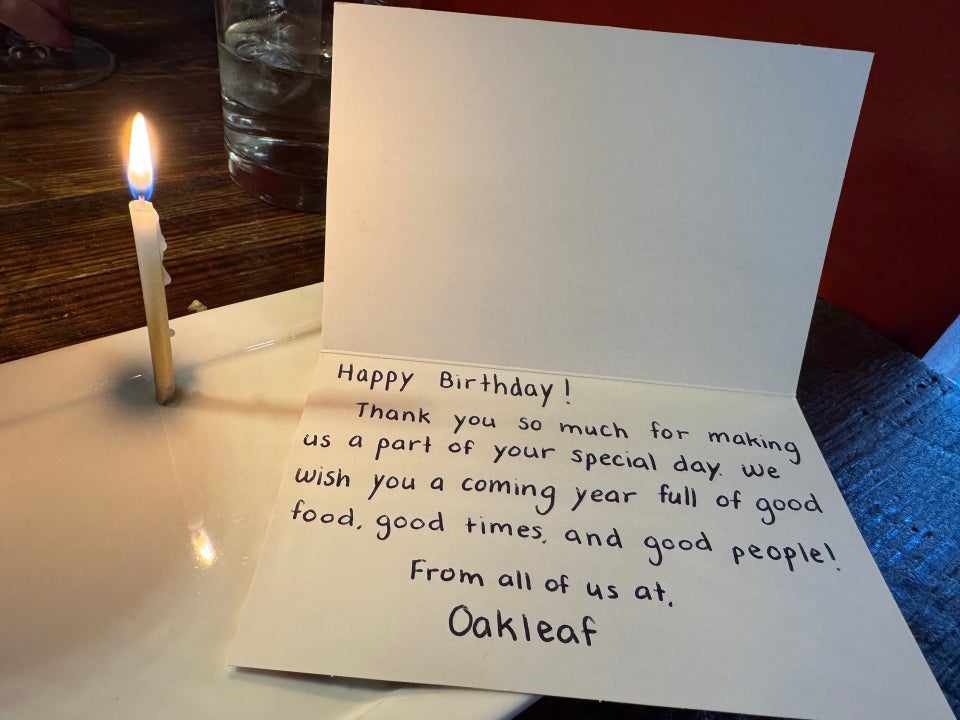 Happy Birthday!
Thank you so much for making
us a part of your special day. we
wish you a coming year full of good
food, good times, and good people!
From all of us at,
Oakleaf